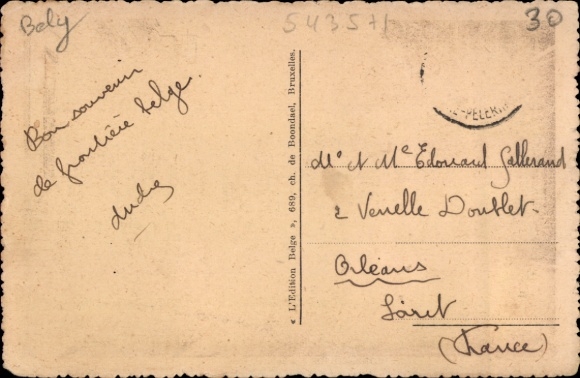 Bely
543571
30
Bon souvenir
de frontière belge.
André
« L'Edition Belge », 689, ch. de Boondael, Bruxelles.
-PELERIN
Mr et Me Edouard Gallerand
2 Venelle Doublet
Orléans
Loiret
(France)